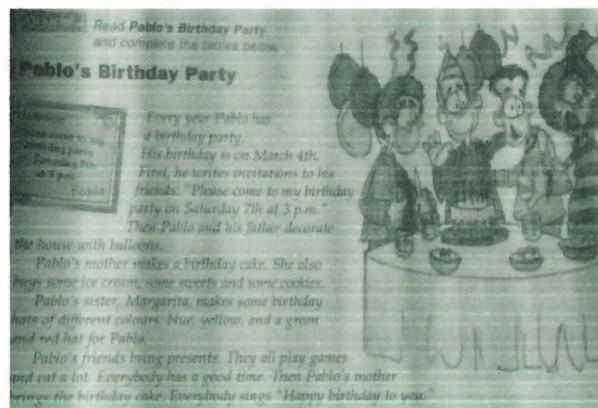 Read Pablo's Birthday Party
and complete the tables below.
Pablo's Birthday Party
come to my
birthday party
Saturday 7th
at 3 p.m.
Pablo
Every year Pablo has
a birthday party.
His birthday is on March 4th.
First, he writes invitations to his
friends: "Please come to my birthday
party on Saturday 7th at 3 p.m."
Then Pablo and his father decorate
the house with balloons.
Pablo's mother makes a birthday cake. She also
buys some ice cream, some sweets and some cookies.
Pablo's sister, Margarita, makes some birthday
hats of different colours: blue, yellow, and a green
and red hat for Pablo.
Pablo's friends bring presents. They all play games
and eat a lot. Everybody has a good time. Then Pablo's mother
brings the birthday cake. Everybody sings "Happy birthday to you."